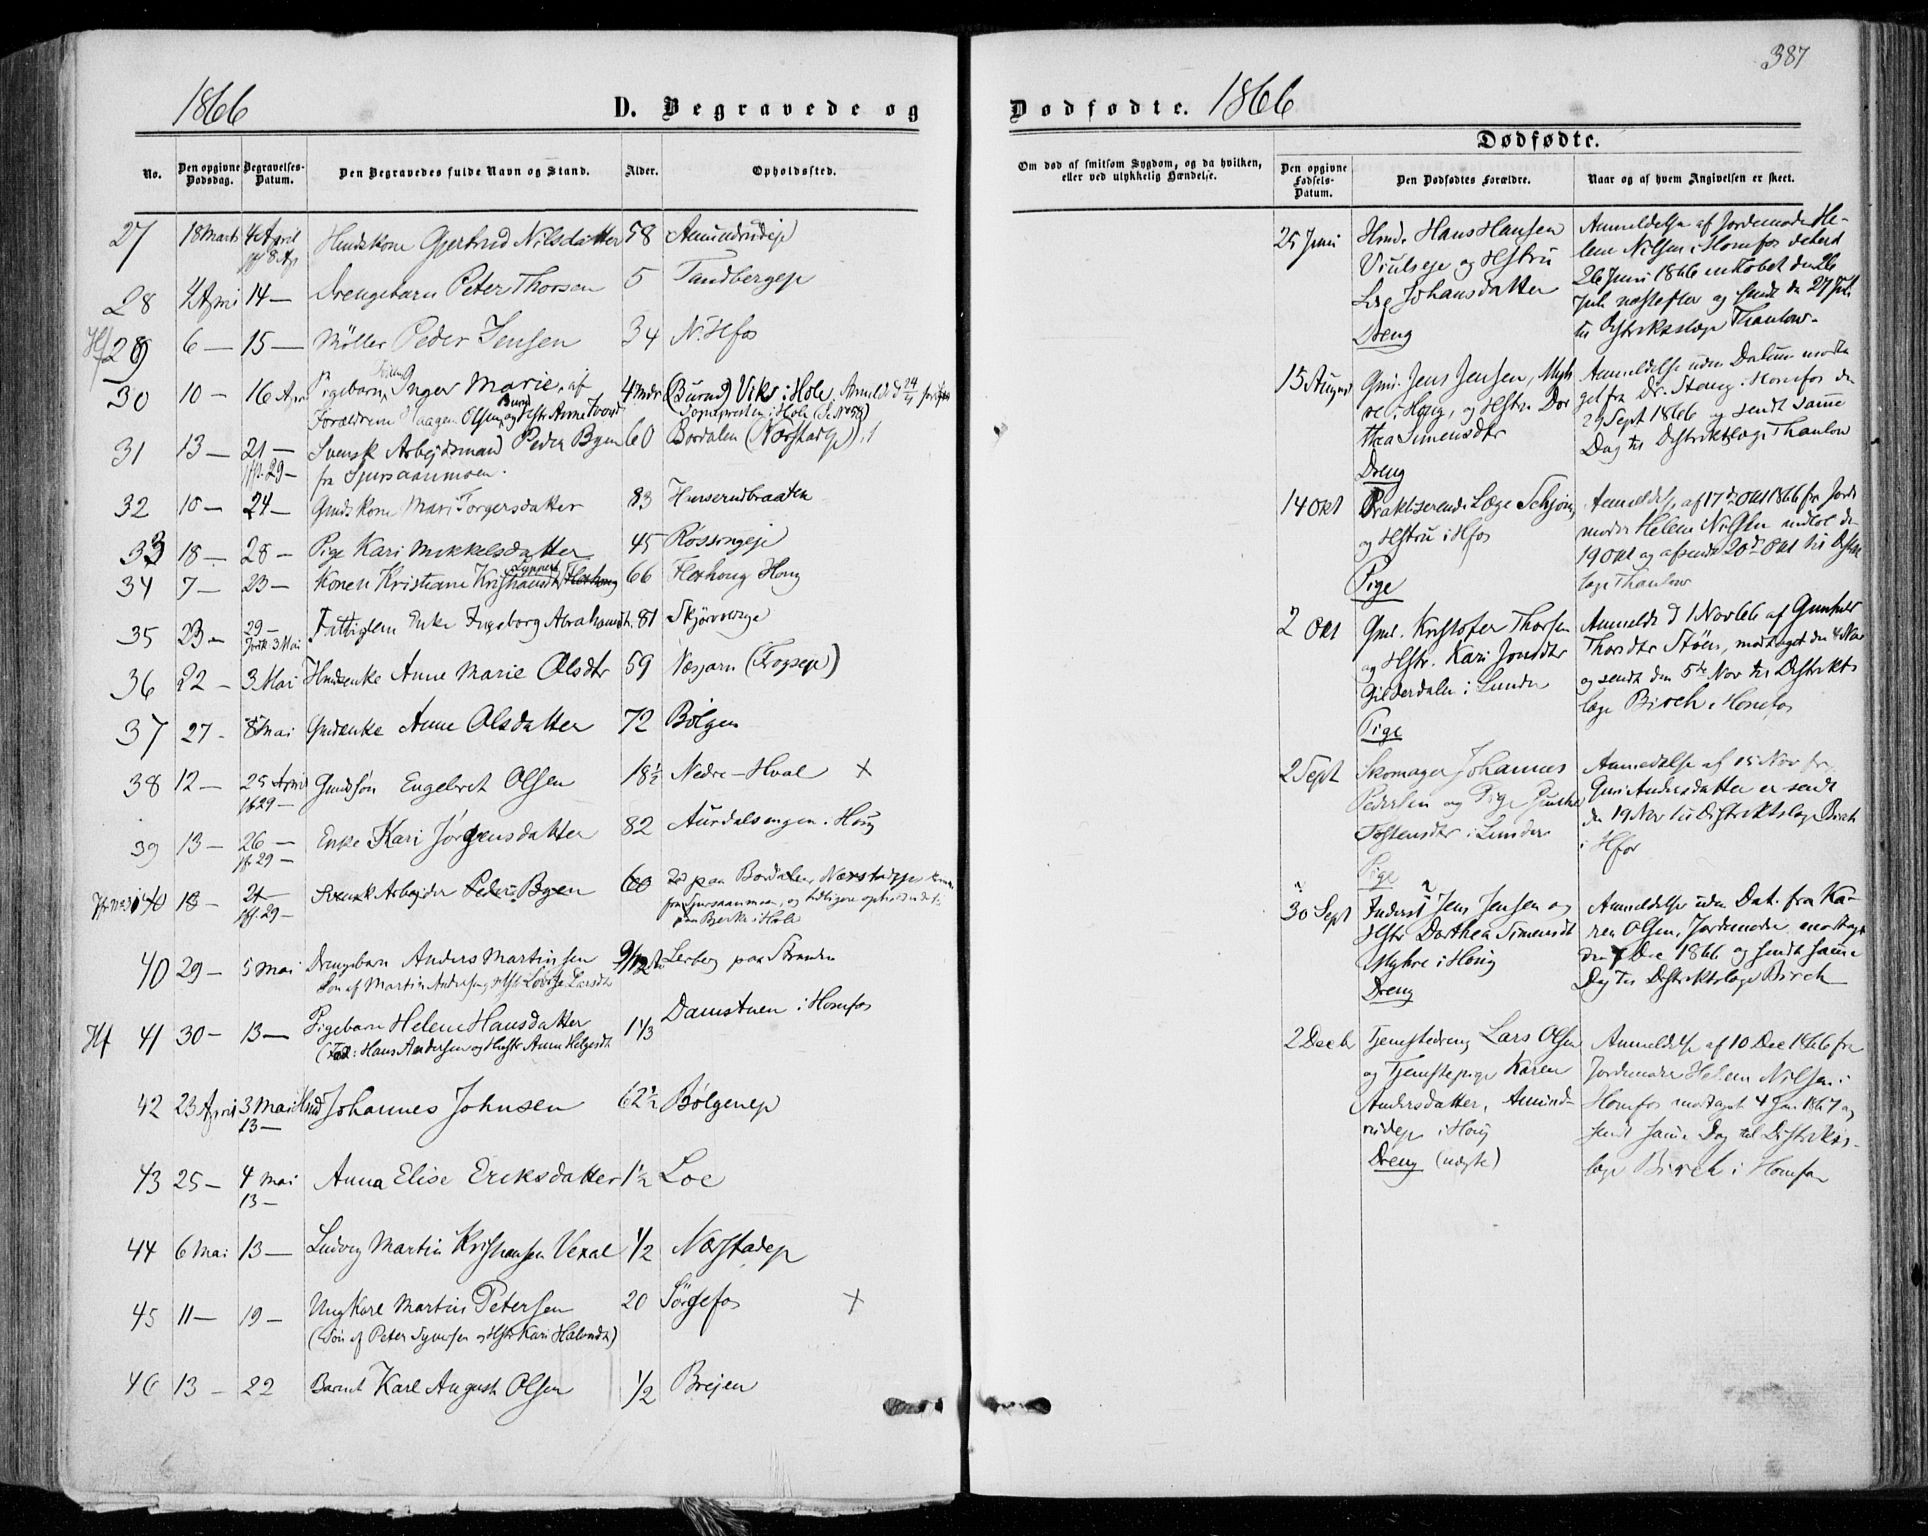 1866
D. Begravede og
No.
Den opgivne Dødsdag.
Begravelses-Datum.
Den Begravedes fulde Navn og Stand.
Alder.
Opholdssted.
27 18 Marts 4 April Gjertrud Nilsdatter 58
8 Apr
28 4 April 14 — Drengebarn Peter Thorsen 5 Tandbergeje
Hf 29 6 — 15 — Møller Peder Jensen 34 N. Hfos
30 10 — 16 Apr Pigebarn Inger Marie, af 4 Mdr (Burud) Viks i Hole
Forældrene Haagen Olsen Burud og Hstr Anne
31 13 — 21 — Svensk Arbejdsmand Peder Byen 60 Bordalen (Nærstadeje)
29 — fra Gjursaanmoen.
32 10 — 24 — Gmds Kone Mari Torgersdatter 83 Hurserudbraaten
33 18 — 28 — Pige Kari Mikkelsdatter 45 Røssingeje
34 7 — 23 — Konen Kristiane Kristiansdtr 66 Flaxhoug Houg
35 23 — 29 — Fattiglem Enke Ingeborg Abrahamsdtr. 81
3 Mai
36 22 — 3 Mai Anne Marie Olsdtr 59 Næsjarn (Frogseje)
37 27 - 8 Mai Gmdenke Anne Olsdatter 72 Bölgen
38 12 — 25 April Gmdsøn Engebret Olsen 18½ Nedre-Hval X
29 —
39 13 — 26 — Enke Kari Jörgensdatter 82 Aurdalsengen i Houg
29 —
40 18 — 21 — Svensk Arbejder Peder Byen 60 paa Bordalen, Nærstadeje
29 — fra Gjursaanmoen, og tidligere
i Hole
40 29 — 5 Mai Drengebarn Anders Martinsen 9/12 Lerberg paa Stranden
Søn af Martin Andersen, Hstr Lovise Larsdtr
Hf 41 30 — 13 — Pigebarn Helene Hansdatter 1 1/3 Damstuen i Honefos
(For: Hans Andersen og Hustr Anne Helgesdtr
42 23 April 3 Mai Johannes Johnsen 62½ Bölgeneje
13 —
43 25 — 4 Mai Anna Elise Eriksdatter 1½ Loe
13 —
44 6 Mai 13 — Ludvig Martin Kristiansen Vexal 1/2 Nærstadeje
45 11 — 19 — Ungkarl Martin Petersen 20 Sörgefos X
(Søn af Peter Syversen og Hstr Kari Halvorsdtr)
46 13 — 22 Barnet Karl August Olsen 1/2 Brejen
387
Dødfødte. 1866
Dødfødte.
Om død af smitsom Sygdom, og da hvilken,
eller ved ulykkelig Hændelse.
Den opgivne Fødsels-Datum.
Den Dødfødtes Forældre.
Naar og af hvem Angivelsen er skeet.
25 Juni Hmd. Hans Hansen Anmeldelse af Jordemoder He-
Viulseje og Hstru lene Nilsen i Honefos dateret
Lise Johansdatter 26 Juni 1866 indløbet den 26
Juli næstefter og sendt den 27 Juli
Dreng til Distriktslæge Thaulow.
15 August Gmd. Jens Jensen, Myh- Anmeldelse uden Datum modta-
re i Houg, og Hstru Dor get fra Dr. Stang i Honefos den
thea Simensdtr 29 Sept 1866 og sendt samme
Dreng Dag til Distriktslæge Thaulow
14 Okt Praktiserende Læge Anmeldelse af 17de Okt 1866 fra Jorde
og Hstru i Hfos moder Helene Nilsen indløb den
19 Okt og afsendt 20de Okt til Distrikts
Pige læge Thaulow
2 Okt Gmd. Kristofer Thorsen Anmeldt d 1 Nov 66 af Gunhild
og Hstr. Kari Jonsdtr Thorsdtr Stöen, modtaget den 4 Nov
Gilderdalen i Lunder og sendt den 5te Nov til Distrikts
Pige læge Birch i Honefos
2 Sept Skomager Johannes Anmeldelse af 15 Nov fra
Pedersen og Pige Guri Andersdatter er sendt
Tostensdtr i Lunder den 19 Nov til Distriktslæge Birch
Pige i Hfos
30 Sept Inderst Jens Jensen og Anmeldelse uden Dat. fra Ka-
Hstr Dorthea Simensdtr ren Olsen, Jordemoder, modtaget
Myhre i Houg den 7 Dec 1866 og sendt samme
Dreng Dag til Distriktslæge Birch
2 Decbr Tjenstedreng Lars Olsen Anmeldelse af 10 Dec 1866 fra
og Tjenstepige Karen Jordemoder Helene Nilsen i
Andersdatter, Amund- Honefos modtaget 4 Jan 1867 og
rudeje i Houg sendt samme Dag til Distrikts-
Dreng (uægte) læge Birch i Honefos